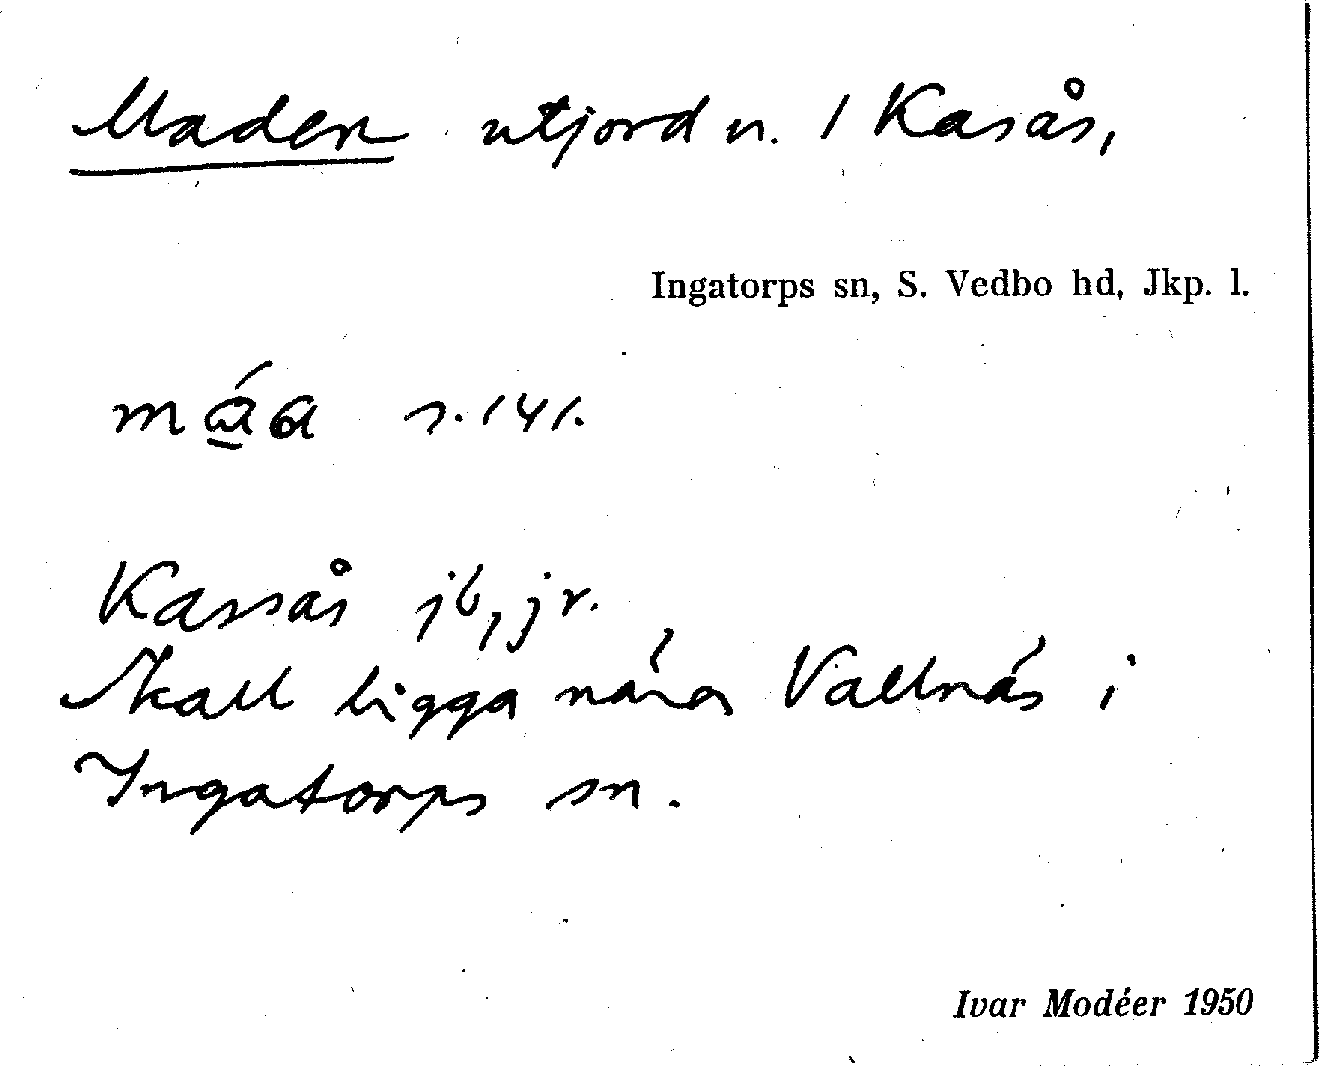 Maden utjord n. 1 Kasås,
Ingatorps sn, S. Vedbo hd, Jkp. l.
s. 141.
Kassås jb, jr.
Skall ligga nära Vallnäs i
Ingatorps sn.
Ivar Modéer 1950